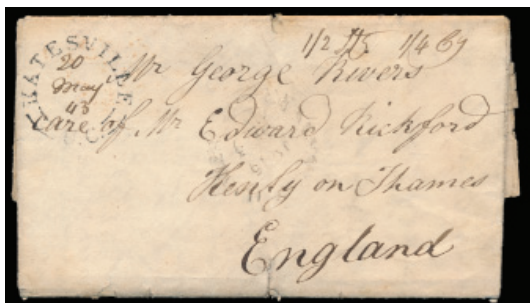 1/2 1/4
KATESVILLE
20
May
43
Mr George Rivers
care of Mr Edward Rickford
Henly on Thames
England